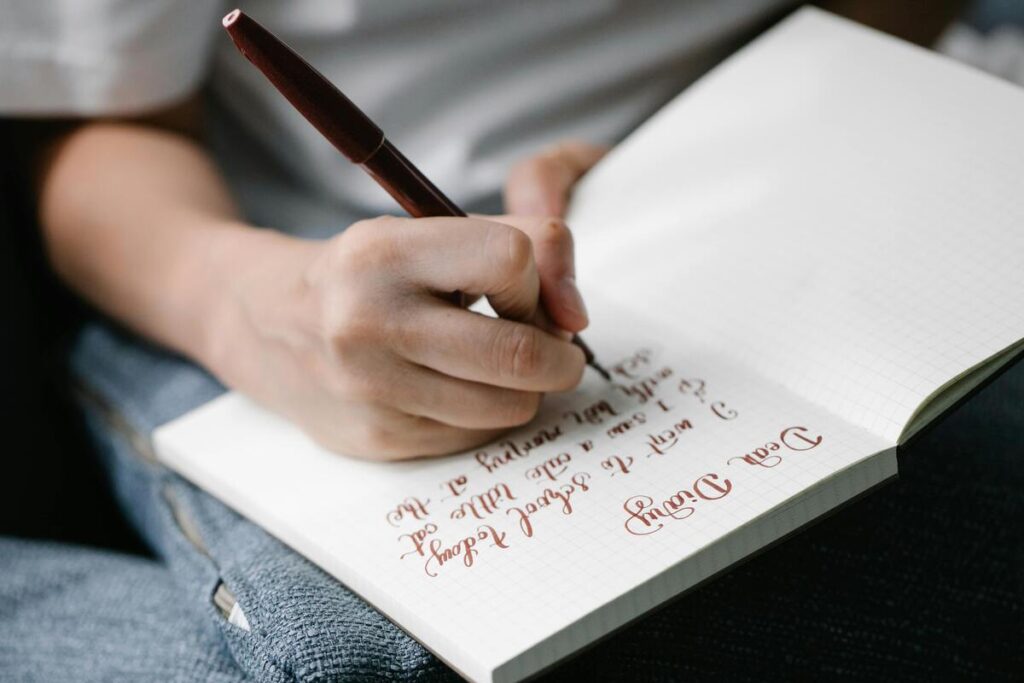 Dear Diary
I went to school today
I saw a cute little cat
with his mommy at the